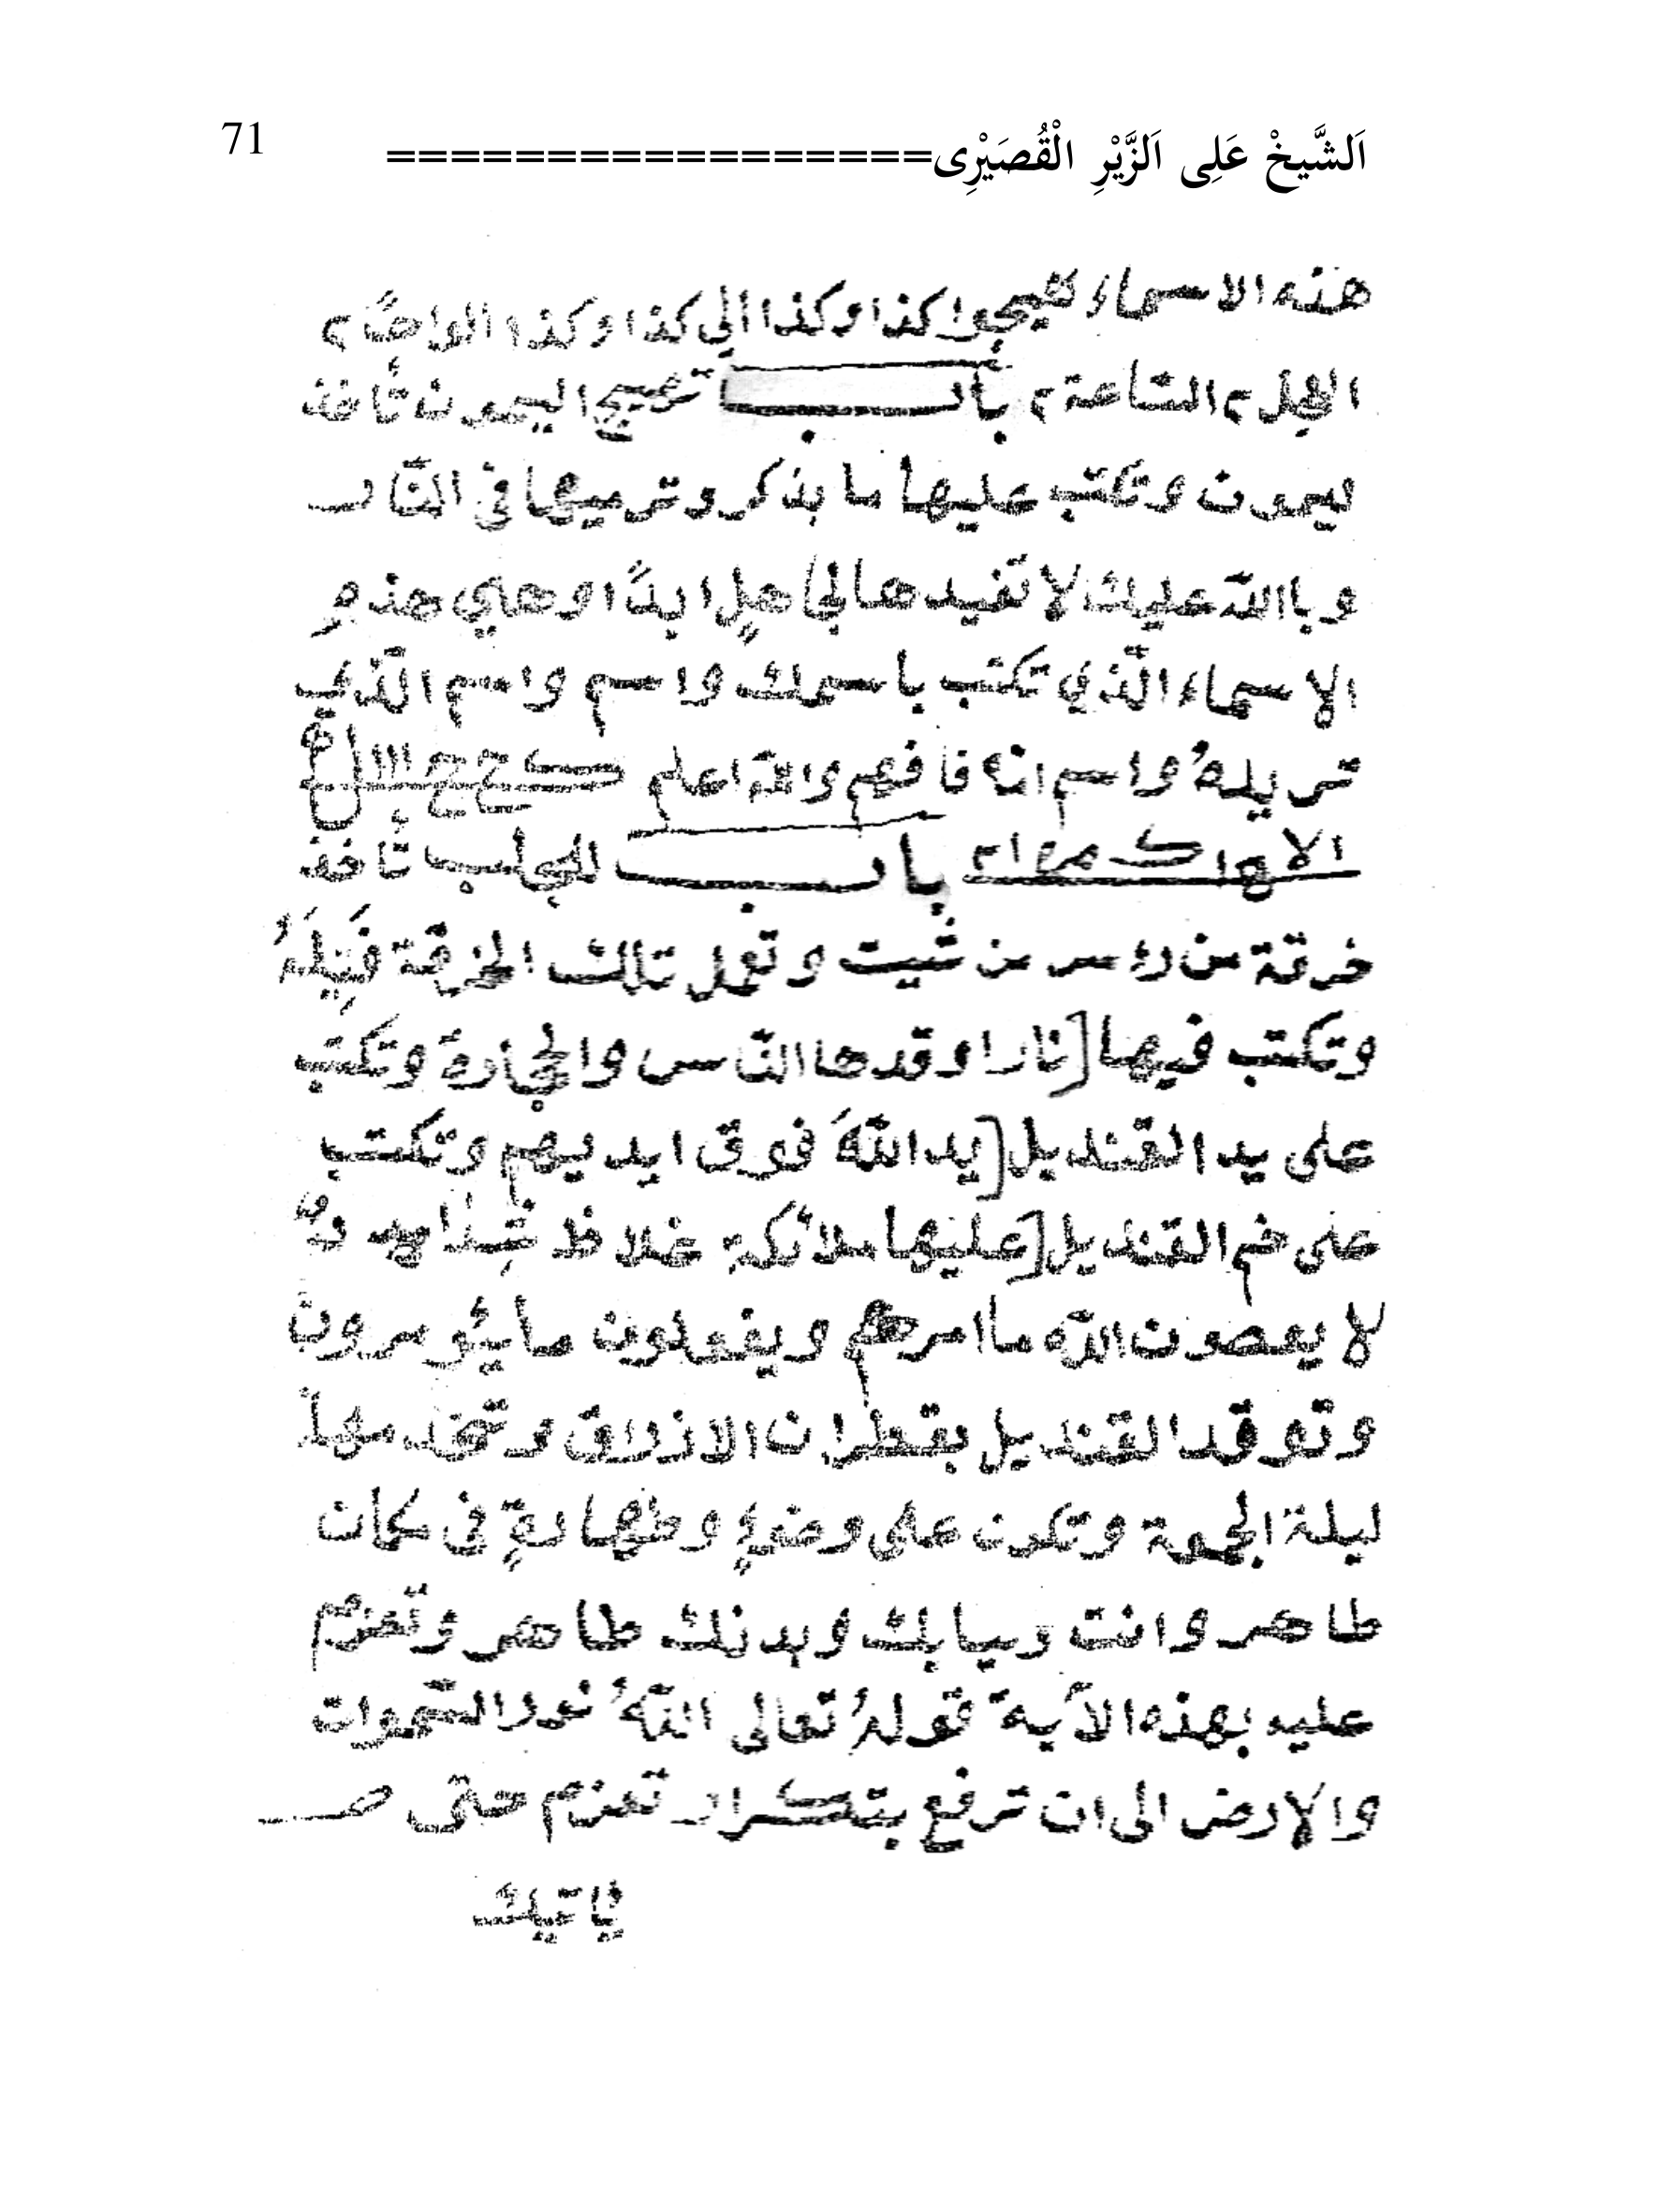 اَلشَّيخْ عَلِى اَلزَّيْرِ الْقُصَيْرِى================= 71
هذه الاسماء كذا وكذا الي كذا وكذا الواحًا ٢
العجل ٢ السّاعة ٢ بأب تهييج اليمون تأخذ
ليمون وتكتب عليها ما بذكر وترميها في النّار
وباالله عليك لا تفيدها لجاهلٍ ابدًا وهي هذهِ
الاسماء الّذي تكتب باسمك واسم واسم الّذي
تريدهُ واسم امّه فافهم والله اعلم
باب للجلب تأخذ
خرقة من رءس من شيت وتعمل تلك الخرقة فَتِيلَهُ
وتكتب فيها [نارا وقدها النّاس والحجارة وتكتب
على يد القنديل [يد اللهَ فوق ايديهم وتكتب
على خم القنديل [عليها ملائكة غلاظ شِداد
لا يعصون الله ما امرهم ويفعلون ما يئومرون
وتوقد القنديل بقطران الازراق
ليلة الجمعة وتكون على وضوءٍ وطهارةٍ فى مكان
طاهر وانت وسيابك وبدنك طاهر وتعزم
عليه بهذه الأية قولهُ تعالى اللهُ نور السّموات
والارض الى ان ترفع بتكرار تعزم حتى
يأتيك